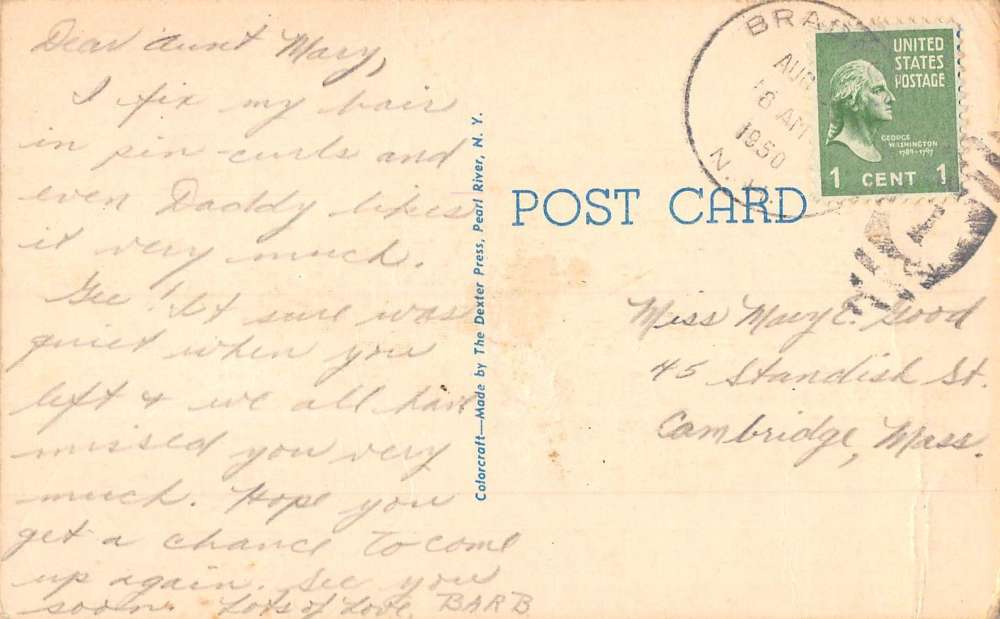 Dear Aunt Mary,
I fix my hair
in pin-curls and
even Daddy likes
it very much.
Gee! It sure was
quiet when you
left & we all have
missed you very
much. Hope you
get a chance to come
up again. See you
soon. Lots of Love, BARB
Colorcraft—Made by The Dexter Press, Pearl River, N. Y.
POST CARD
AUG
8 AM
1950
N.Y.
UNITED
STATES
POSTAGE
GEORGE
WASHINGTON
1789-1797
1 CENT 1
Miss Mary E. Good
45 Standish St.
Cambridge, Mass.